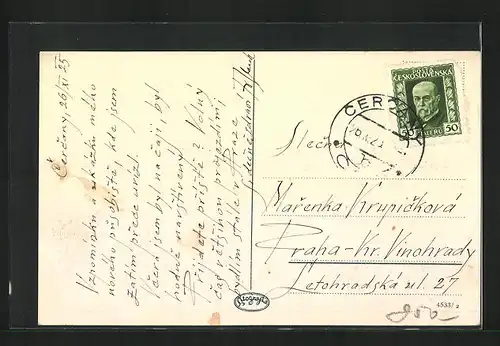 Čerčany, 26/XI 25
Vzpomínku a ukázku mého
nového působiště, kde jsem
zatím přede
Včera jsem byl na čaji, byl
hodně navštívený.
Přijdete příště? Volný
čas většinou prajezdím,
bydlím stále v Praze
POŠTA
ČESKOSLOVENSKÁ
50 HALÉŘŮ 50
ČERČANY
Slečna
Mařenka Krupičková
Praha-Kr. Vinohrady
Letohradská ul. 27
Fotografia
4533/2